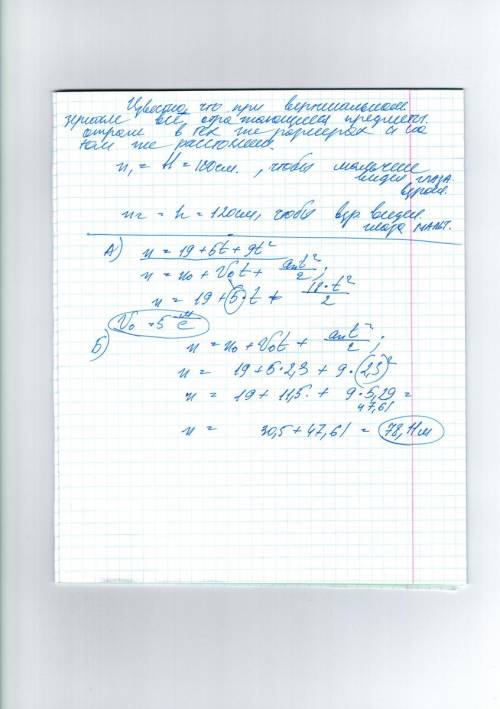 Известно, что при вертикальном
зеркале все отражающиеся предметы
отраж в тех же размерах и на
том же расстоянии.
x₁ = H = 180см., чтобы мальчик
видел глаза
взросл.
x₂ = h = 120см, чтобы взр видел
глаза мальч.
А) x = 19 + 5t + 9t²
x = x₀ + V₀t + at²/2;
x = 19 + 5·t + 18·t²/2
V₀ = 5 м/с
Б) x = x₀ + V₀t + at²/2;
x = 19 + 5·2,3 + 9·(2,3)²
x = 19 + 11,5 + 9·5,29 =
47,61
x = 30,5 + 47,61 = 78,11м